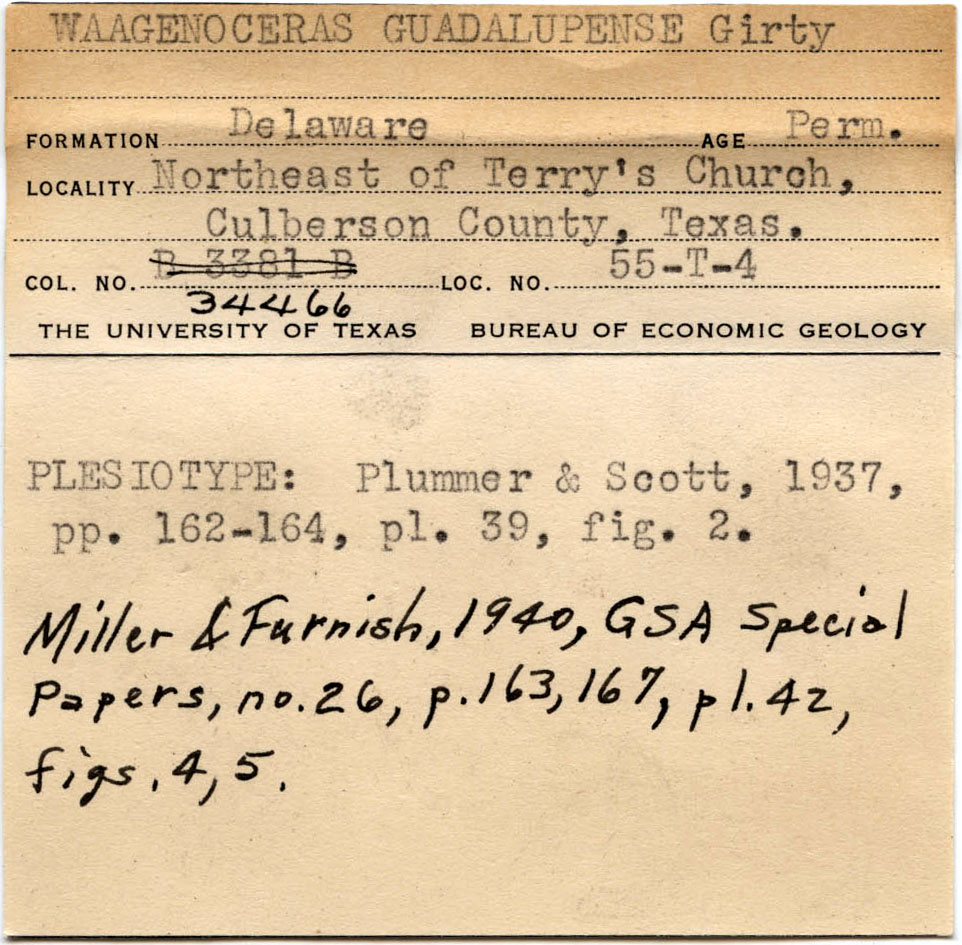 WAAGENOCERAS GUADALUPENSE Girty
FORMATION Delaware AGE Perm.
LOCALITY Northeast of Terry's Church,
Culberson County, Texas.
COL. NO. B 3381 B LOC. NO. 55-T-4
34466
THE UNIVERSITY OF TEXAS BUREAU OF ECONOMIC GEOLOGY
PLESIOTYPE: Plummer & Scott, 1937,
pp. 162-164, pl. 39, fig. 2.
Miller & Furnish, 1940, GSA Special
Papers, no. 26, p. 163, 167, pl. 42,
figs. 4, 5.